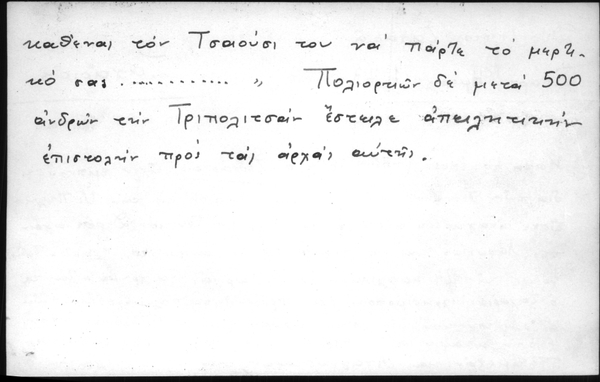 καθένας τόν Τσαούσι του νά πάρτε τό μερτι-
κό σας ............. „ Πολιορκῶν δέ μετά 500
ἀνδρῶν τήν Τριπολιτσάν ἔστειλε ἀπειλητικήν
ἐπιστολήν πρός τάς ἀρχάς αὐτῆς.